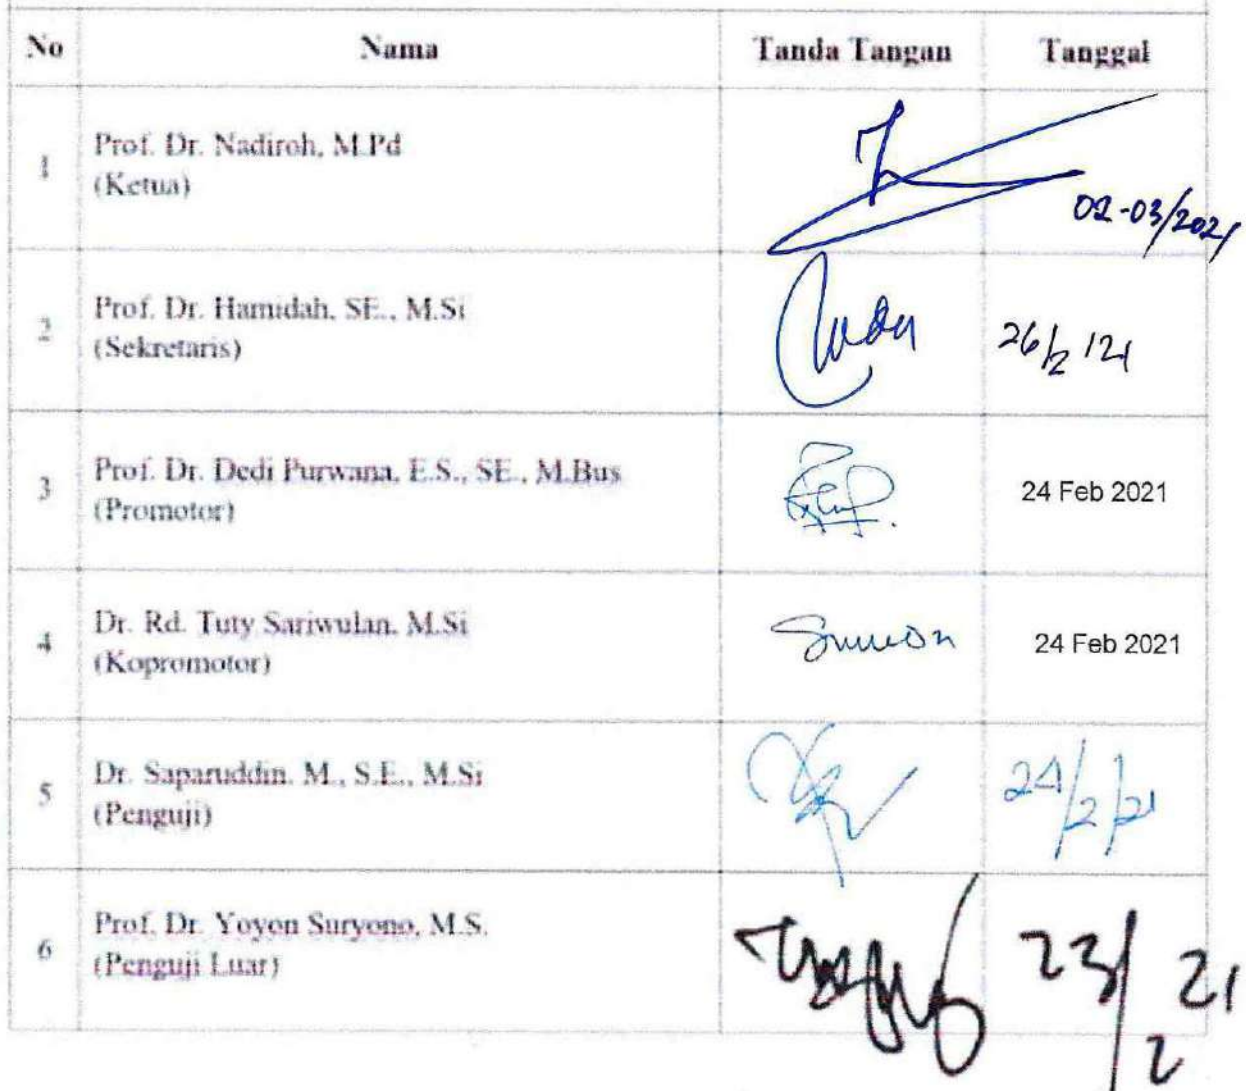 No Nama Tanda Tangan Tanggal
1 Prof. Dr. Nadiroh, M.Pd
(Ketua)
02-03/2021
2 Prof. Dr. Hamidah, SE., M.Si
(Sekretaris)
26/2 '21
3 Prof. Dr. Dedi Purwana, E.S., SE., M.Bus
(Promotor)
24 Feb 2021
4 Dr. Rd. Tuty Sariwulan, M.Si
(Kopromotor)
24 Feb 2021
5 Dr. Saparuddin. M., S.E., M.Si
(Penguji)
24/2/21
6 Prof. Dr. Yoyon Suryono, M.S.
(Penguji Luar)
23/2 21